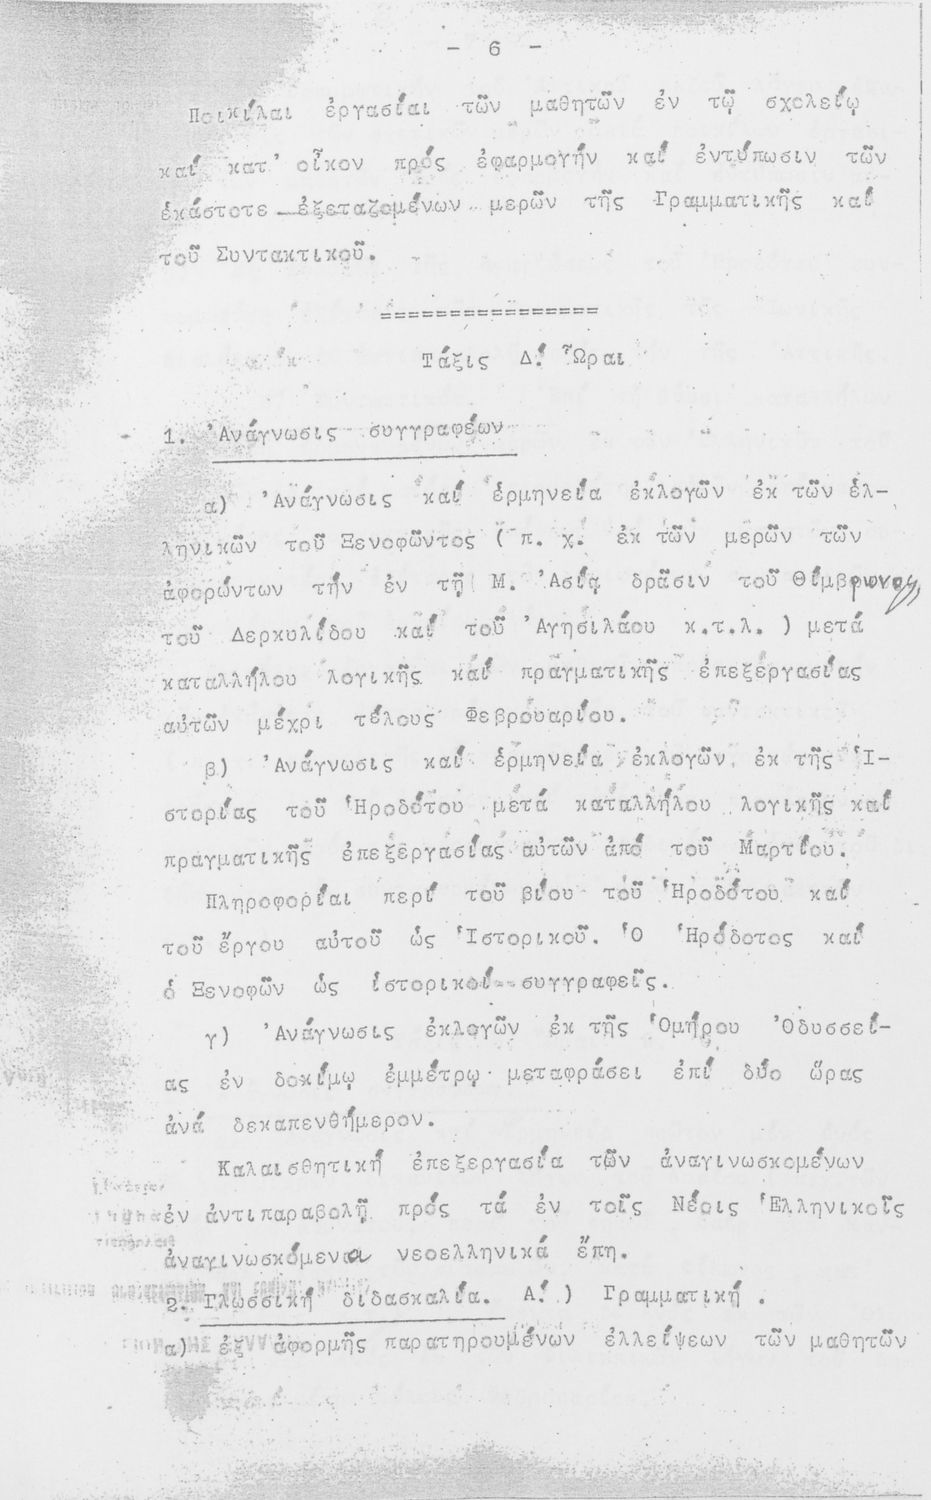 - 6 -
Ποικίλαι ἐργασίαι τῶν μαθητῶν ἐν τῷ σχολείῳ
καί κατ' οἶκον πρός ἐφαρμογήν καί ἐντύπωσιν τῶν
ἑκάστοτε ἐξεταζομένων μερῶν τῆς Γραμματικῆς καί
τοῦ Συντακτικοῦ.
================
Τάξις Δ! Ὧραι
1. Ἀνάγνωσις συγγραφέων
α) Ἀνάγνωσις καί ἑρμηνεία ἐκλογῶν ἐκ τῶν ἑλ-
ληνικῶν τοῦ Ξενοφῶντος ( π. χ. ἐκ τῶν μερῶν τῶν
ἀφορώντων τήν ἐν τῇ Μ. Ἀσίᾳ δρᾶσιν τοῦ Θίμβρωνος,
τοῦ Δερκυλίδου καί τοῦ Ἀγησιλάου κ.τ.λ. ) μετά
καταλλήλου λογικῆς καί πραγματικῆς ἐπεξεργασίας
αὐτῶν μέχρι τέλους Φεβρουαρίου.
β) Ἀνάγνωσις καί ἑρμηνεία ἐκλογῶν ἐκ τῆς Ἱ-
στορίας τοῦ Ἡροδότου μετά καταλλήλου λογικῆς καί
πραγματικῆς ἐπεξεργασίας αὐτῶν ἀπό τοῦ Μαρτίου.
Πληροφορίαι περί τοῦ βίου τοῦ Ἡροδότου καί
τοῦ ἔργου αὐτοῦ ὡς Ἱστορικοῦ. Ὁ Ἡρόδοτος καί
ὁ Ξενοφῶν ὡς ἱστορικοί συγγραφεῖς.
γ) Ἀνάγνωσις ἐκλογῶν ἐκ τῆς Ὁμήρου Ὀδυσσεί-
ας ἐν δοκίμῳ ἐμμέτρῳ μεταφράσει ἐπί δύο ὥρας
ἀνά δεκαπενθήμερον.
Καλαισθητική ἐπεξεργασία τῶν ἀναγινωσκομένων
ἐν ἀντιπαραβολῇ πρός τά ἐν τοῖς Νέοις Ἑλληνικοῖς
ἀναγινωσκόμενα νεοελληνικά ἔπη.
2. Γλωσσική διδασκαλία. Α! ) Γραμματική .
α) ἐξ ἀφορμῆς παρατηρουμένων ἐλλείψεων τῶν μαθητῶν